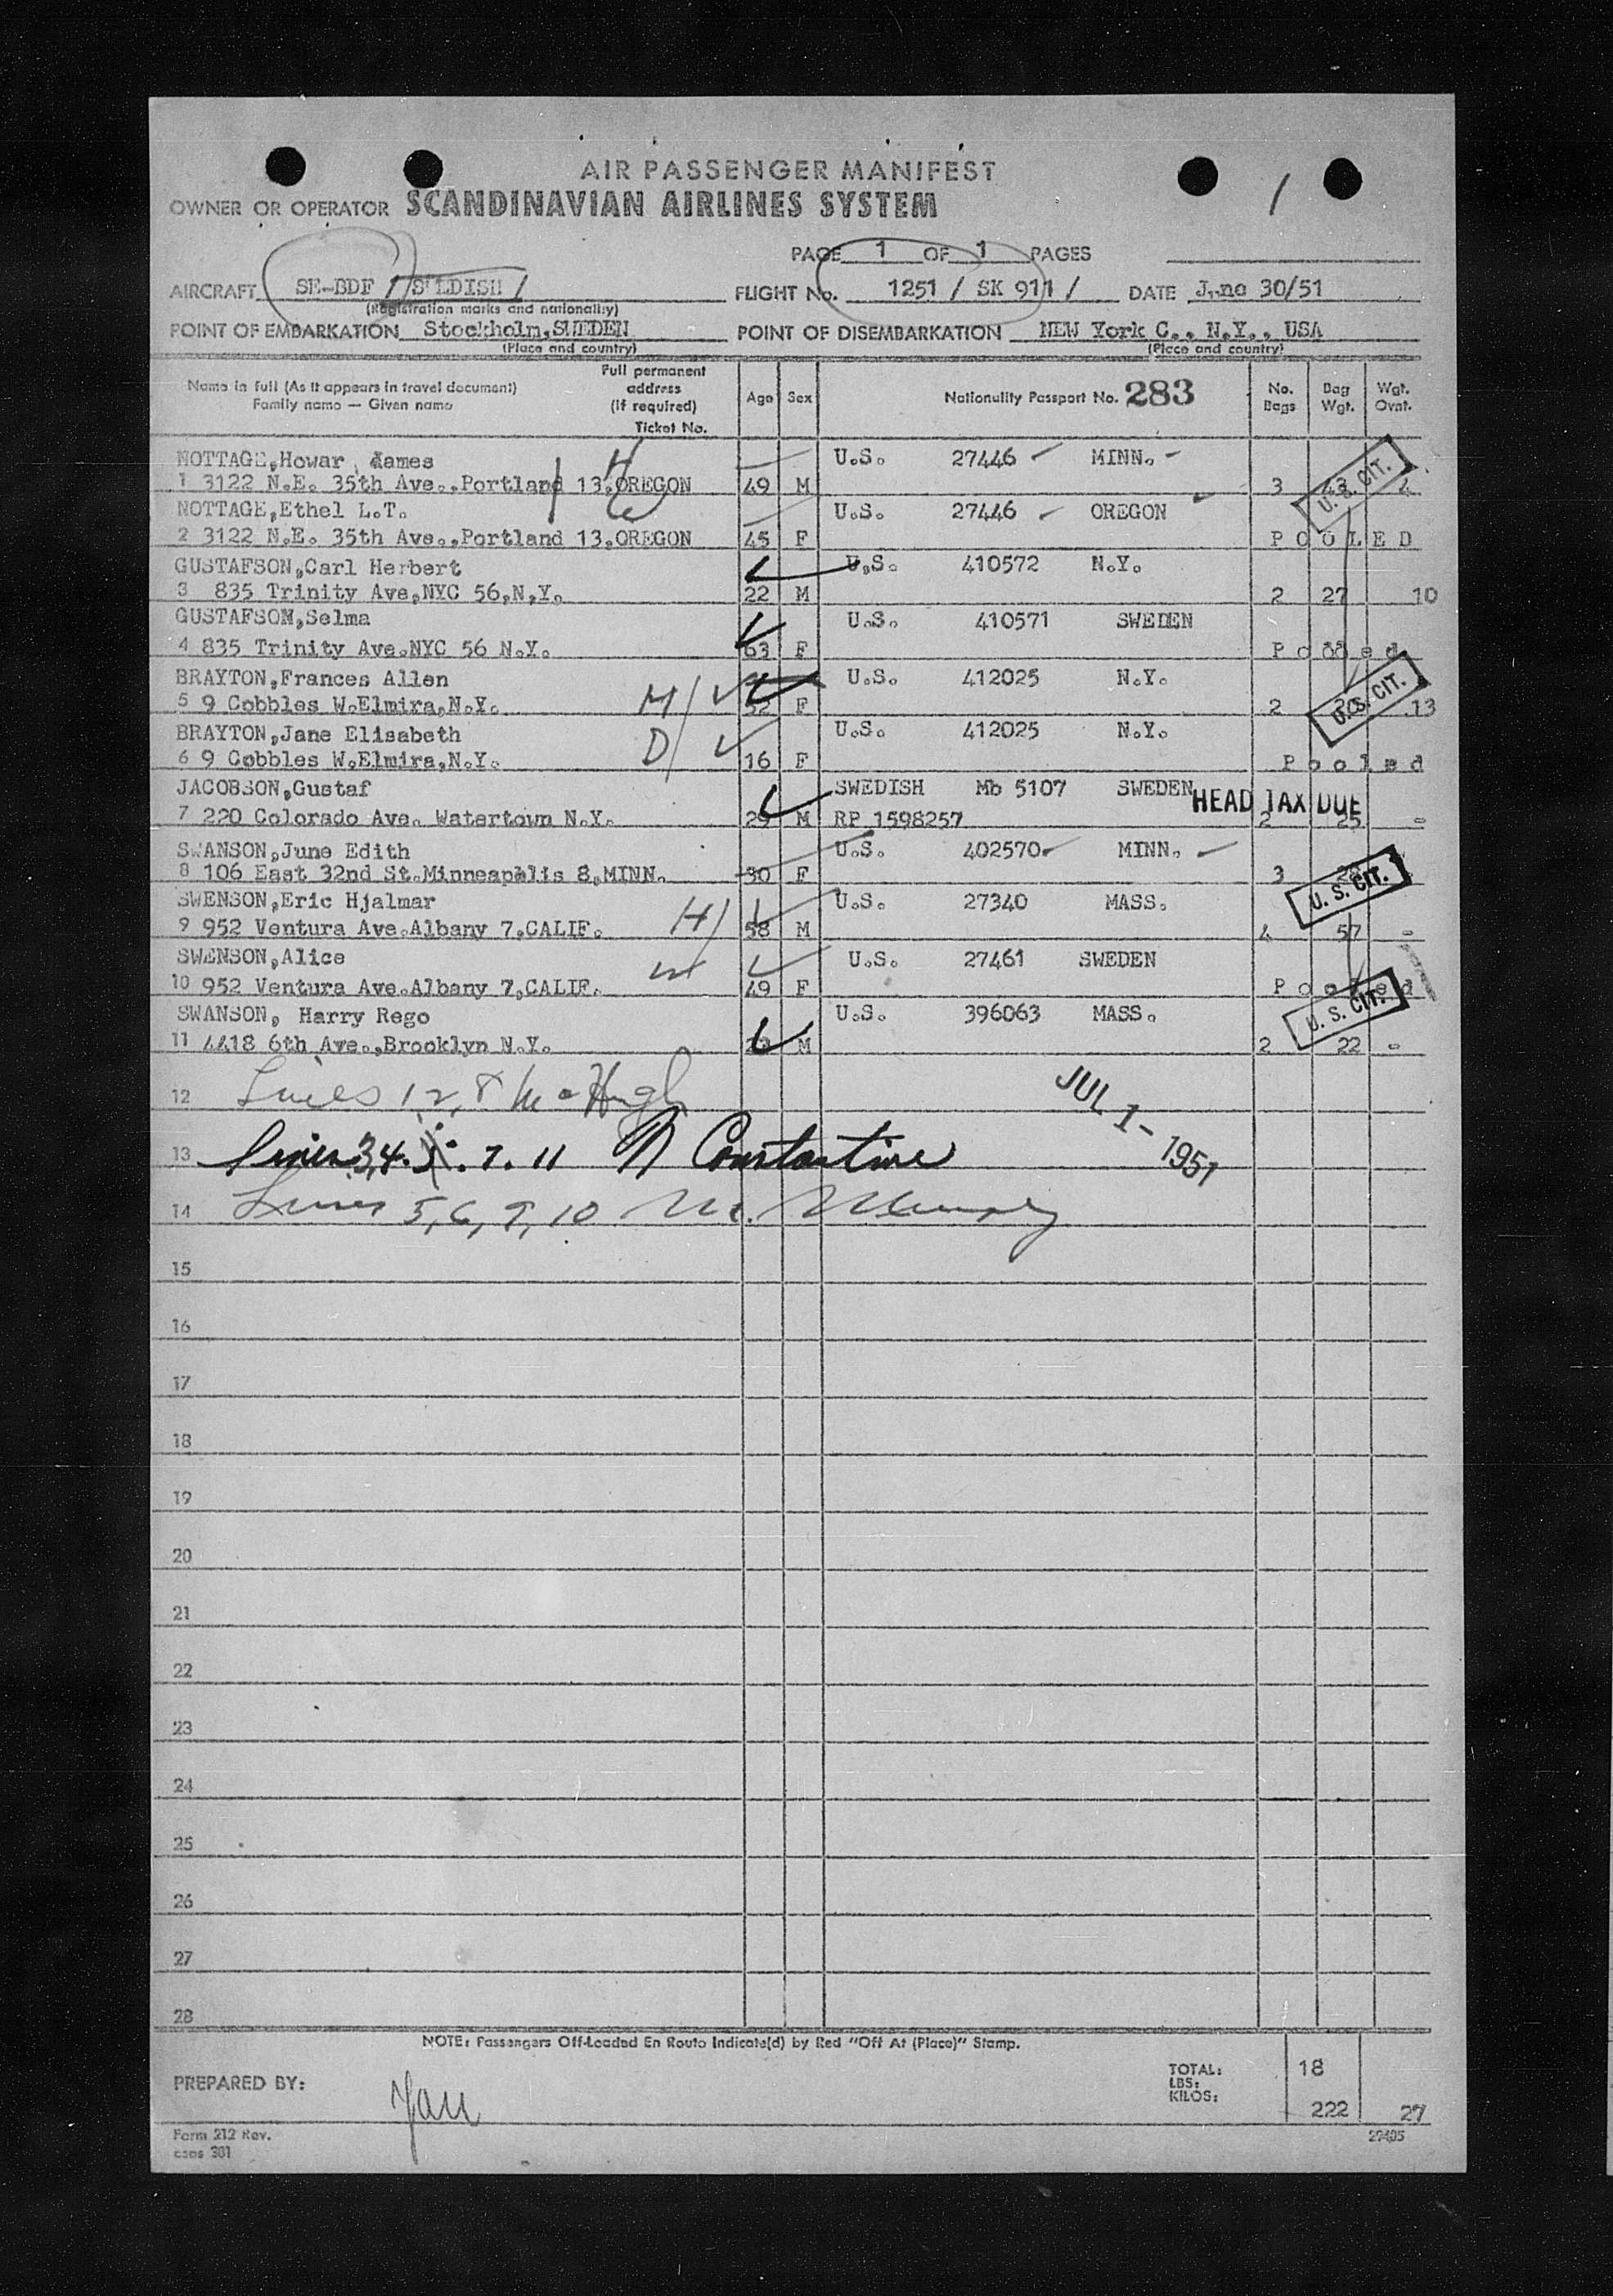 AIR PASSENGER MANIFEST
OWNER OR OPERATOR SCANDINAVIAN AIRLINES SYSTEM
/
PAGE 1 OF 1 PAGES
AIRCRAFT SE-BDF / SWEDISH / FLIGHT No. 1251 / SK 911 / DATE June 30/51
(Registration marks and nationality)
POINT OF EMBARKATION Stockholm,SWEDEN POINT OF DISEMBARKATION NEW York C., N.Y., USA
(Place and country) (Place and country)
Name in full (As it appears in travel document) Family name — Given name Full permanent address (if required) Ticket No. Age Sex Nationality Passport No. 283 No. Bags Bag Wgt. Wgt. Ovnt.
NOTTAGE,Howar James H U.S. 27446 MINN.
1 3122 N.E. 35th Ave.,Portland 13.OREGON 49 M 3 43 4 U. S. CIT.
NOTTAGE,Ethel L.T. W U.S. 27446 OREGON
2 3122 N.E. 35th Ave.,Portland 13.OREGON 45 F P O O L E D
GUSTAFSON,Carl Herbert U.S. 410572 N.Y.
3 835 Trinity Ave,NYC 56,N,Y. 22 M 2 27 10
GUSTAFSON,Selma U.S. 410571 SWEDEN
4 835 Trinity Ave.NYC 56 N.Y. 63 F
BRAYTON,Frances Allen U.S. 412025 N.Y.
5 9 Cobbles W.Elmira,N.Y. M/ 52 F 2 13 U. S. CIT.
BRAYTON,Jane Elisabeth U.S. 412025 N.Y.
6 9 Cobbles W.Elmira,N.Y. D/ 16 F P o o l e d
JACOBSON,Gustaf SWEDISH Mb 5107 SWEDEN HEAD TAX DUE
7 220 Colorado Ave. Watertown N.Y. 29 M RP 1598257 2 25 -
SWANSON,June Edith U.S. 402570 MINN.
8 106 East 32nd St.Minneapolis 8,MINN. 30 F 3 U. S. CIT.
SWENSON,Eric Hjalmar U.S. 27340 MASS.
9 952 Ventura Ave.Albany 7.CALIF. H/ 58 M 4 57 -
SWENSON,Alice U.S. 27461 SWEDEN
10 952 Ventura Ave.Albany 7,CALIF. W 49 F P o o l e d
SWANSON, Harry Rego U.S. 396063 MASS. U. S. CIT.
11 4418 6th Ave.,Brooklyn N.Y. M 2 22 -
12 Lines 1 2, 8 McHugh JUL 1 - 1951
13 Lines 3,4. 7. 11 N Constantine
14 Lines 5, 6, 9, 10 M.
15
16
17
18
19
20
21
22
23
24
25
26
27
28
NOTE: Passengers Off-Loaded En Route Indicate(d) by Red "Off At (Place)" Stamp.
PREPARED BY: TOTAL: 18
LBS:
KILOS: 222 27
Form 212 Rev.
csas 301